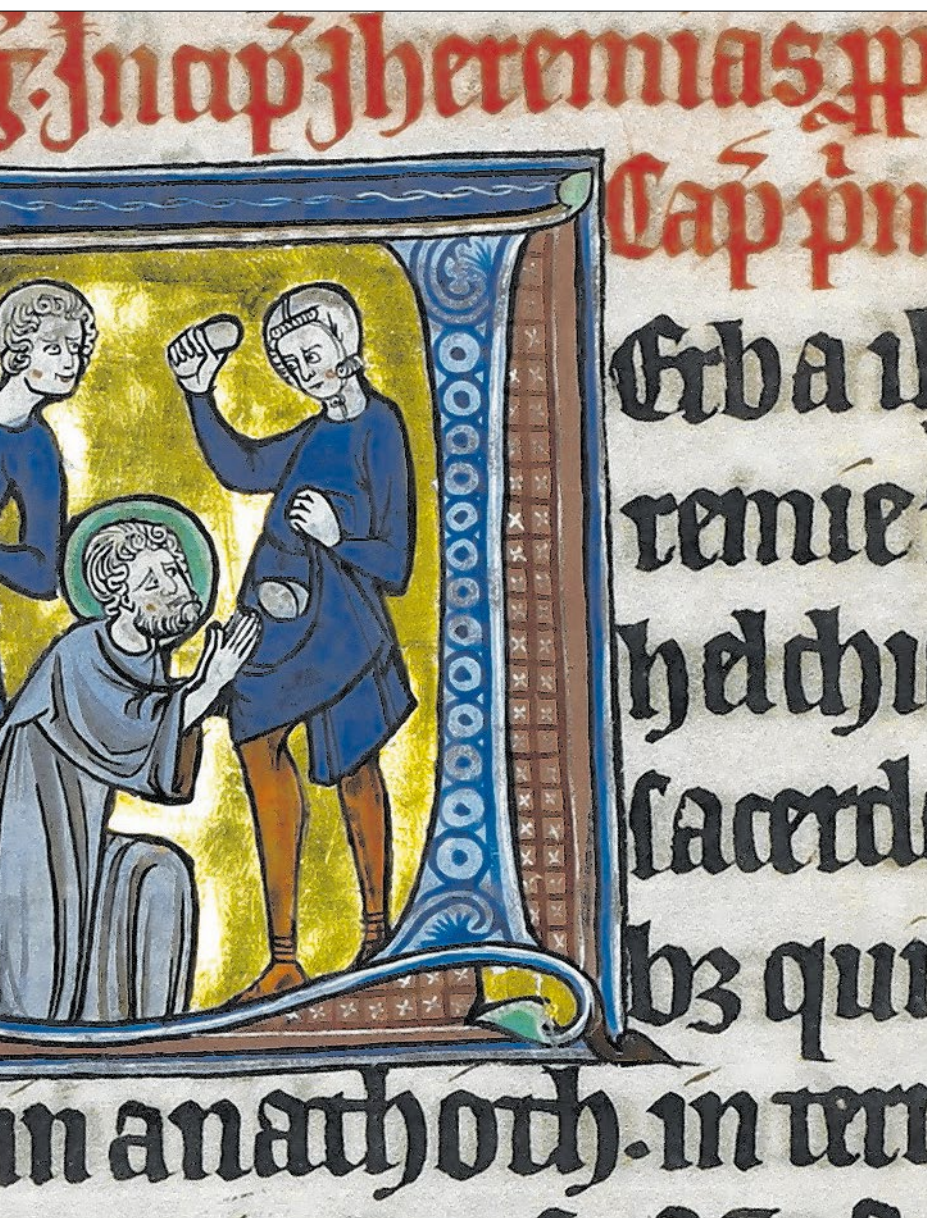 Incip̄ Jheremias
Cap̄ p̄m
Erba
remie
helchi
sacerd
bꝫ qui
in anathoth. in terr